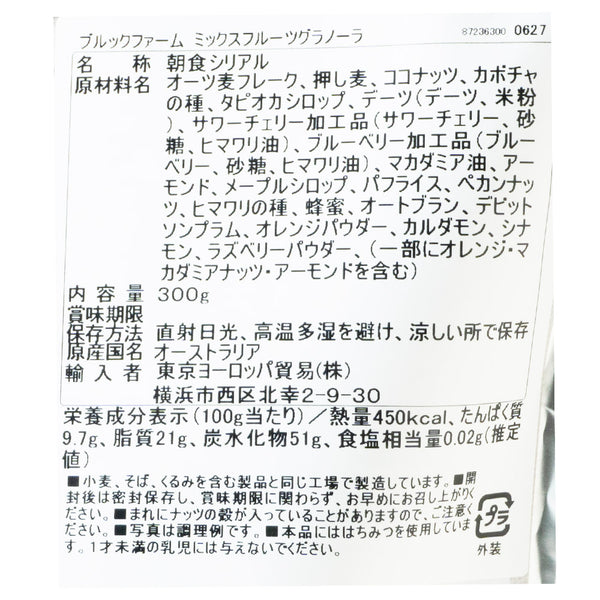 ブルックファーム ミックスフルーツグラノーラ 87236300 0627
名称 朝食シリアル
原材料名 オーツ麦フレーク、押し麦、ココナッツ、カボチャ
の種、タピオカシロップ、デーツ(デーツ、米粉
)、サワーチェリー加工品(サワーチェリー、砂
糖、ヒマワリ油)、ブルーベリー加工品(ブルー
ベリー、砂糖、ヒマワリ油)、マカダミア油、アー
モンド、メープルシロップ、パフライス、ペカンナッ
ツ、ヒマワリの種、蜂蜜、オートブラン、デビット
ソンプラム、オレンジパウダー、カルダモン、シナ
モン、ラズベリーパウダー、(一部にオレンジ・マ
カダミアナッツ・アーモンドを含む)
内容量 300g
賞味期限
保存方法 直射日光、高温多湿を避け、涼しい所で保存
原産国名 オーストラリア
輸入者 東京ヨーロッパ貿易(株)
横浜市西区北幸2-9-30
栄養成分表示(100g当たり)/熱量450kcal、たんぱく質
9.7g、脂質21g、炭水化物51g、食塩相当量0.02g(推定
値)
■小麦、そば、くるみを含む製品と同じ工場で製造しています。■開
封後は密封保存し、賞味期限に関わらず、お早めにお召し上がりく
ださい。■まれにナッツの殻が入っていることがありますので、ご注意く
ださい。■写真は調理例です。■本品にははちみつを使用していま
す。1才未満の乳児には与えないでください。
プラ
外装